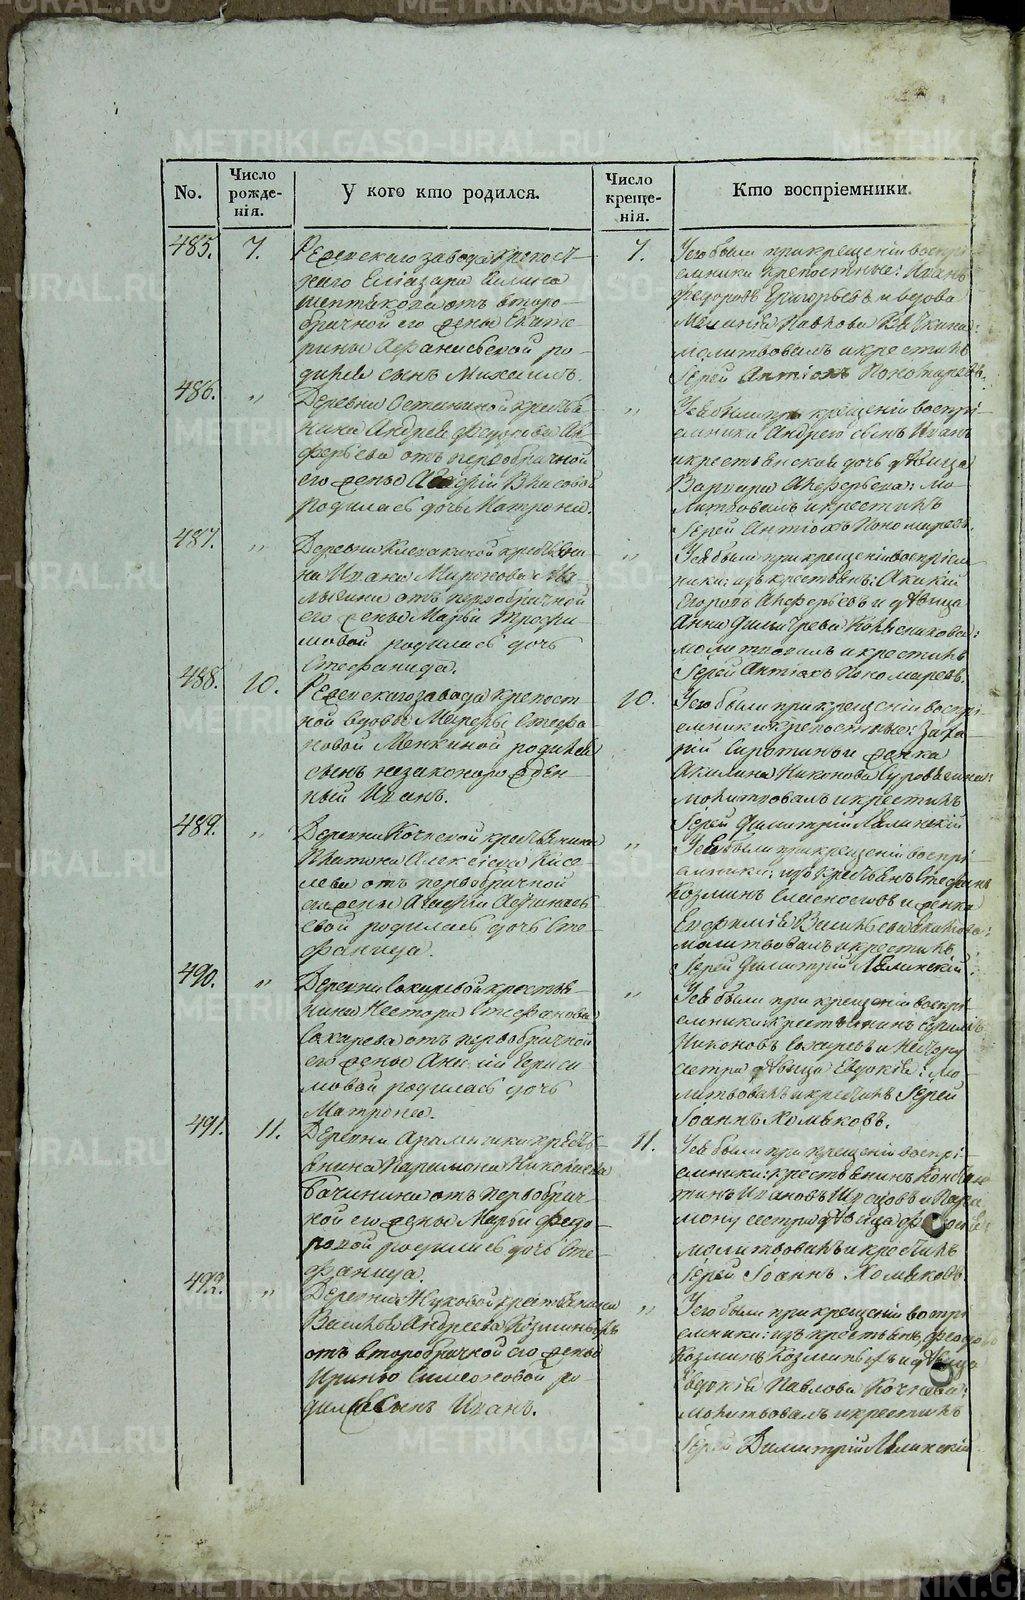 No.
Число рожде-
нія.
У кого кто родился.
Число креще-
нія.
Кто воспріемники.
485. 7.
Режевскаго завода крепост-
наго Елиазара
от второ-
брачной его жены Екате-
рины Афанасьевой ро-
дился сынъ Михаилъ.
7.
У его были при крещеніи воспрі-
емники крепостные: Иванъ
Федоровъ Григорьевъ и вдова
Меланія Павлова
молитвовалъ и крестилъ
Іерей Антіохъ Пономаревъ.
486. "
Деревни Останиной крестья-
нина Андрея
отъ первобрачной
его жены
родилась дочь Матрона.
"
У ея были при крещеніи воспрі-
емники Андрею сынъ Иванъ
и крестьянская дочь дѣвица
Варвара Алферьева: мо-
литвовалъ и крестилъ
Іерей Антіохъ Пономаревъ.
487. "
Деревни крестьяни-
на Ивана Миронова
отъ первобрачной
его жены Марьи Трофи-
мовой родилась дочь
Стефанида.
"
У ея были при крещеніи воспріем-
ники: изъ крестьянъ: Акакій
Егоровъ Алферьевъ и дѣвица
Анна Колесникова:
молитвовалъ и крестилъ
Іерей Антіохъ Пономаревъ.
488. 10.
Режевскаго завода крепост-
ной вдовы Стефа-
новой родился
сынъ незаконорожден-
ный Иванъ.
10.
У его были при крещеніи воспрі-
емники крепостные: Заха-
рій Сиротинъ и женка
Акилина Никонова
молитвовалъ и крестилъ
Іерей Димитрій
489. "
Деревни Кочневой крестьянина
Платона Алексеева Кисе-
лева отъ первобрачной
его жены Агафіи Афанась-
евой родилась дочь Сте-
фанида.
"
У ея были при крещеніи воспрі-
емники: изъ крестьянъ Стефанъ
Козминъ и женка
Евфимія Васильева
молитвовалъ и крестилъ
Іерей Димитрій
490. "
Деревни Сохаревой крестья-
нина Нестора Стефанова
Сохарева отъ первобрачной
его жены Гераси-
мовой родилась дочь
Матрона.
"
У ея были при крещеніи воспрі-
емники: крестьянинъ
Никоновъ Сохаревъ и Нестору
сестра дѣвица Евдокія: мо-
литвовалъ и крестилъ Іерей
Іоаннъ Хомяковъ.
491. 11.
Деревни Арамашки кресть-
янина Парамона Николаева
Бачинина отъ первобрач-
ной его жены Марьи Федо-
ровой родилась дочь Сте-
фанида.
11.
У ея были при крещеніи воспрі-
емники: крестьянинъ Констан-
тинъ Ивановъ и Пара-
мону сестра дѣвица
молитвовалъ и крестилъ
Іерей Іоаннъ Хомяковъ.
492. "
Деревни Жуковой крестьянина
Василья Андреева Козминыхъ
отъ второбрачной его жены
Ирины Симеоновой ро-
дился сынъ Иванъ.
"
У его были при крещеніи воспрі-
емники: изъ крестьянъ Феодоръ
Козминъ Козминыхъ и дѣвица
Евдокія Павлова Кочнева:
молитвовалъ и крестилъ
Іерей Димитрій
METRIKI.GASO-URAL.RU